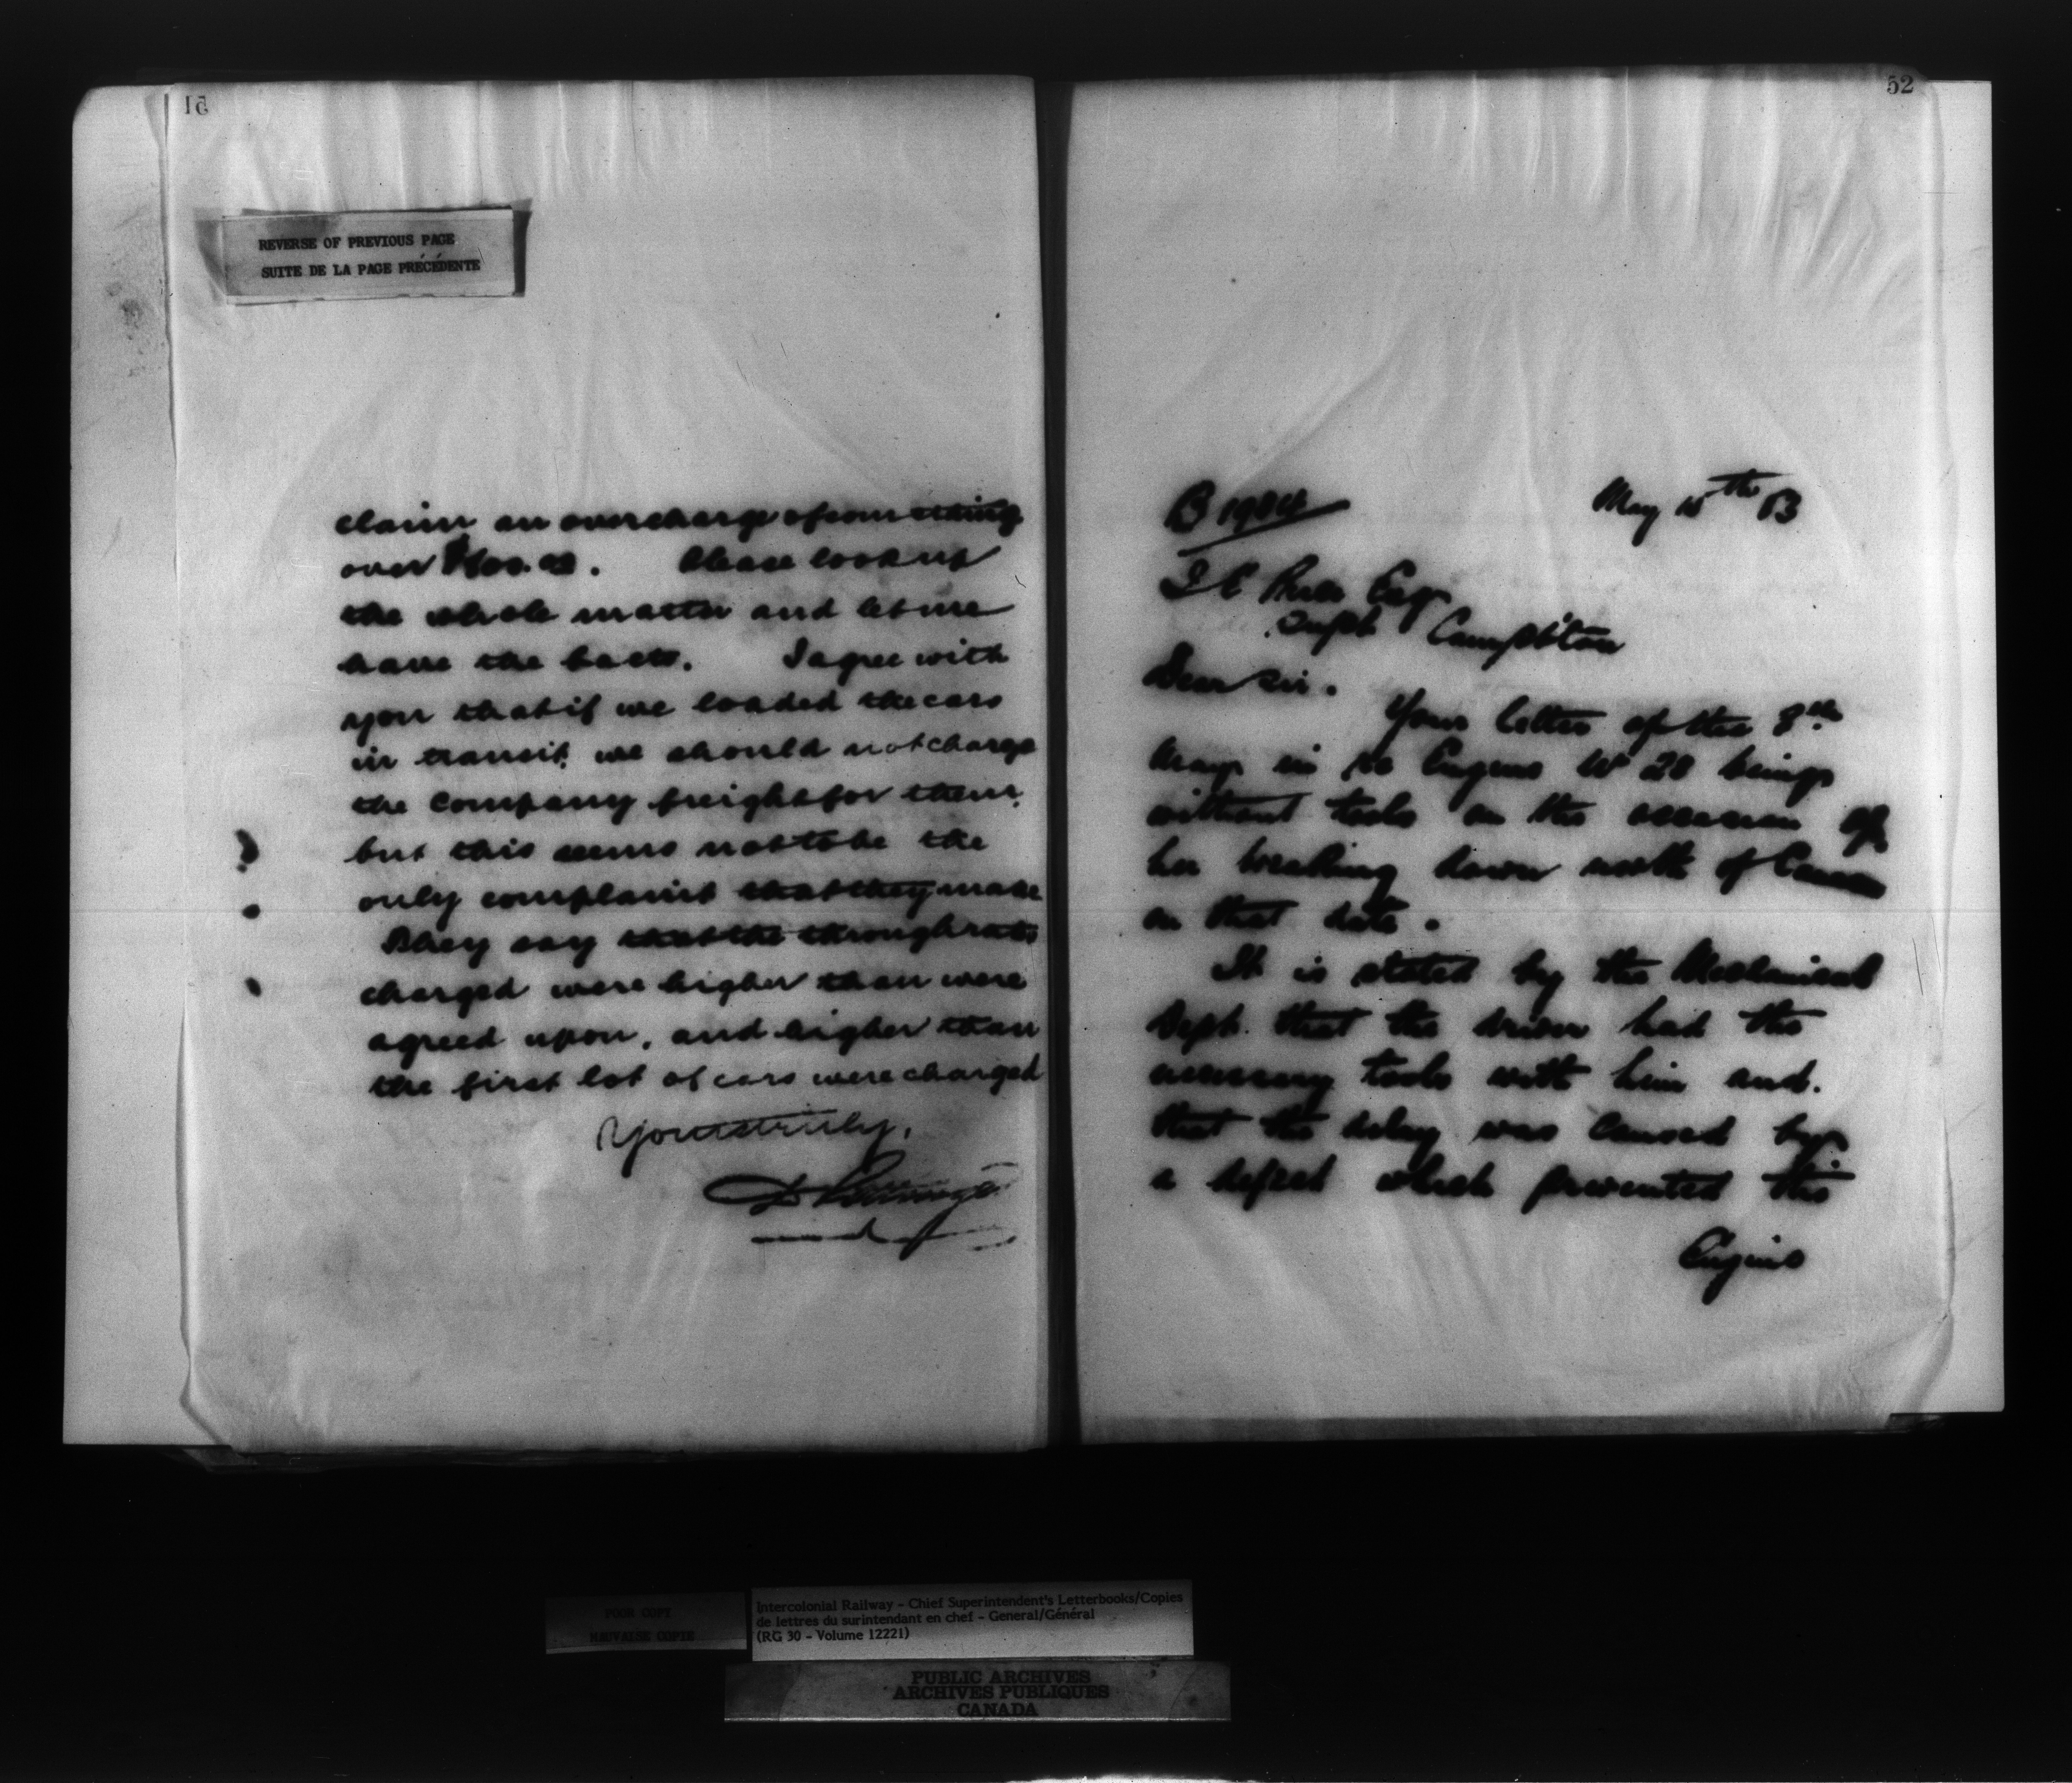 51
REVERSE OF PREVIOUS PAGE
SUITE DE LA PAGE PRÉCÉDENTE
claim an overcharge of something
over Please look up
the whole matter and let me
have the facts. I agree with
you that if we loaded the cars
in transit, we should not charge
the Company freight for them,
but this seems not to be the
only complaint that they make
They say that the through rates
charged were higher than were
agreed upon, and higher than
the first lot of cars were charged
Yours truly,
52
B 1984
May th 83
Esq
Supt Campbellton
Dear Sir.
Your letter of the 8th
in re Engine No 28 being
without tools on the occasion of
her breaking down north of
on that date.
It is stated by the Mechanical
Dept. that the driver had the
necessary tools with him and.
that the delay was caused by
a defect which prevented this
Engine
POOR COPY
MAUVAISE COPIE
Intercolonial Railway - Chief Superintendent's Letterbooks/Copies
de lettres du surintendant en chef - General/Général
(RG 30 - Volume 12221)
PUBLIC ARCHIVES
ARCHIVES PUBLIQUES
CANADA